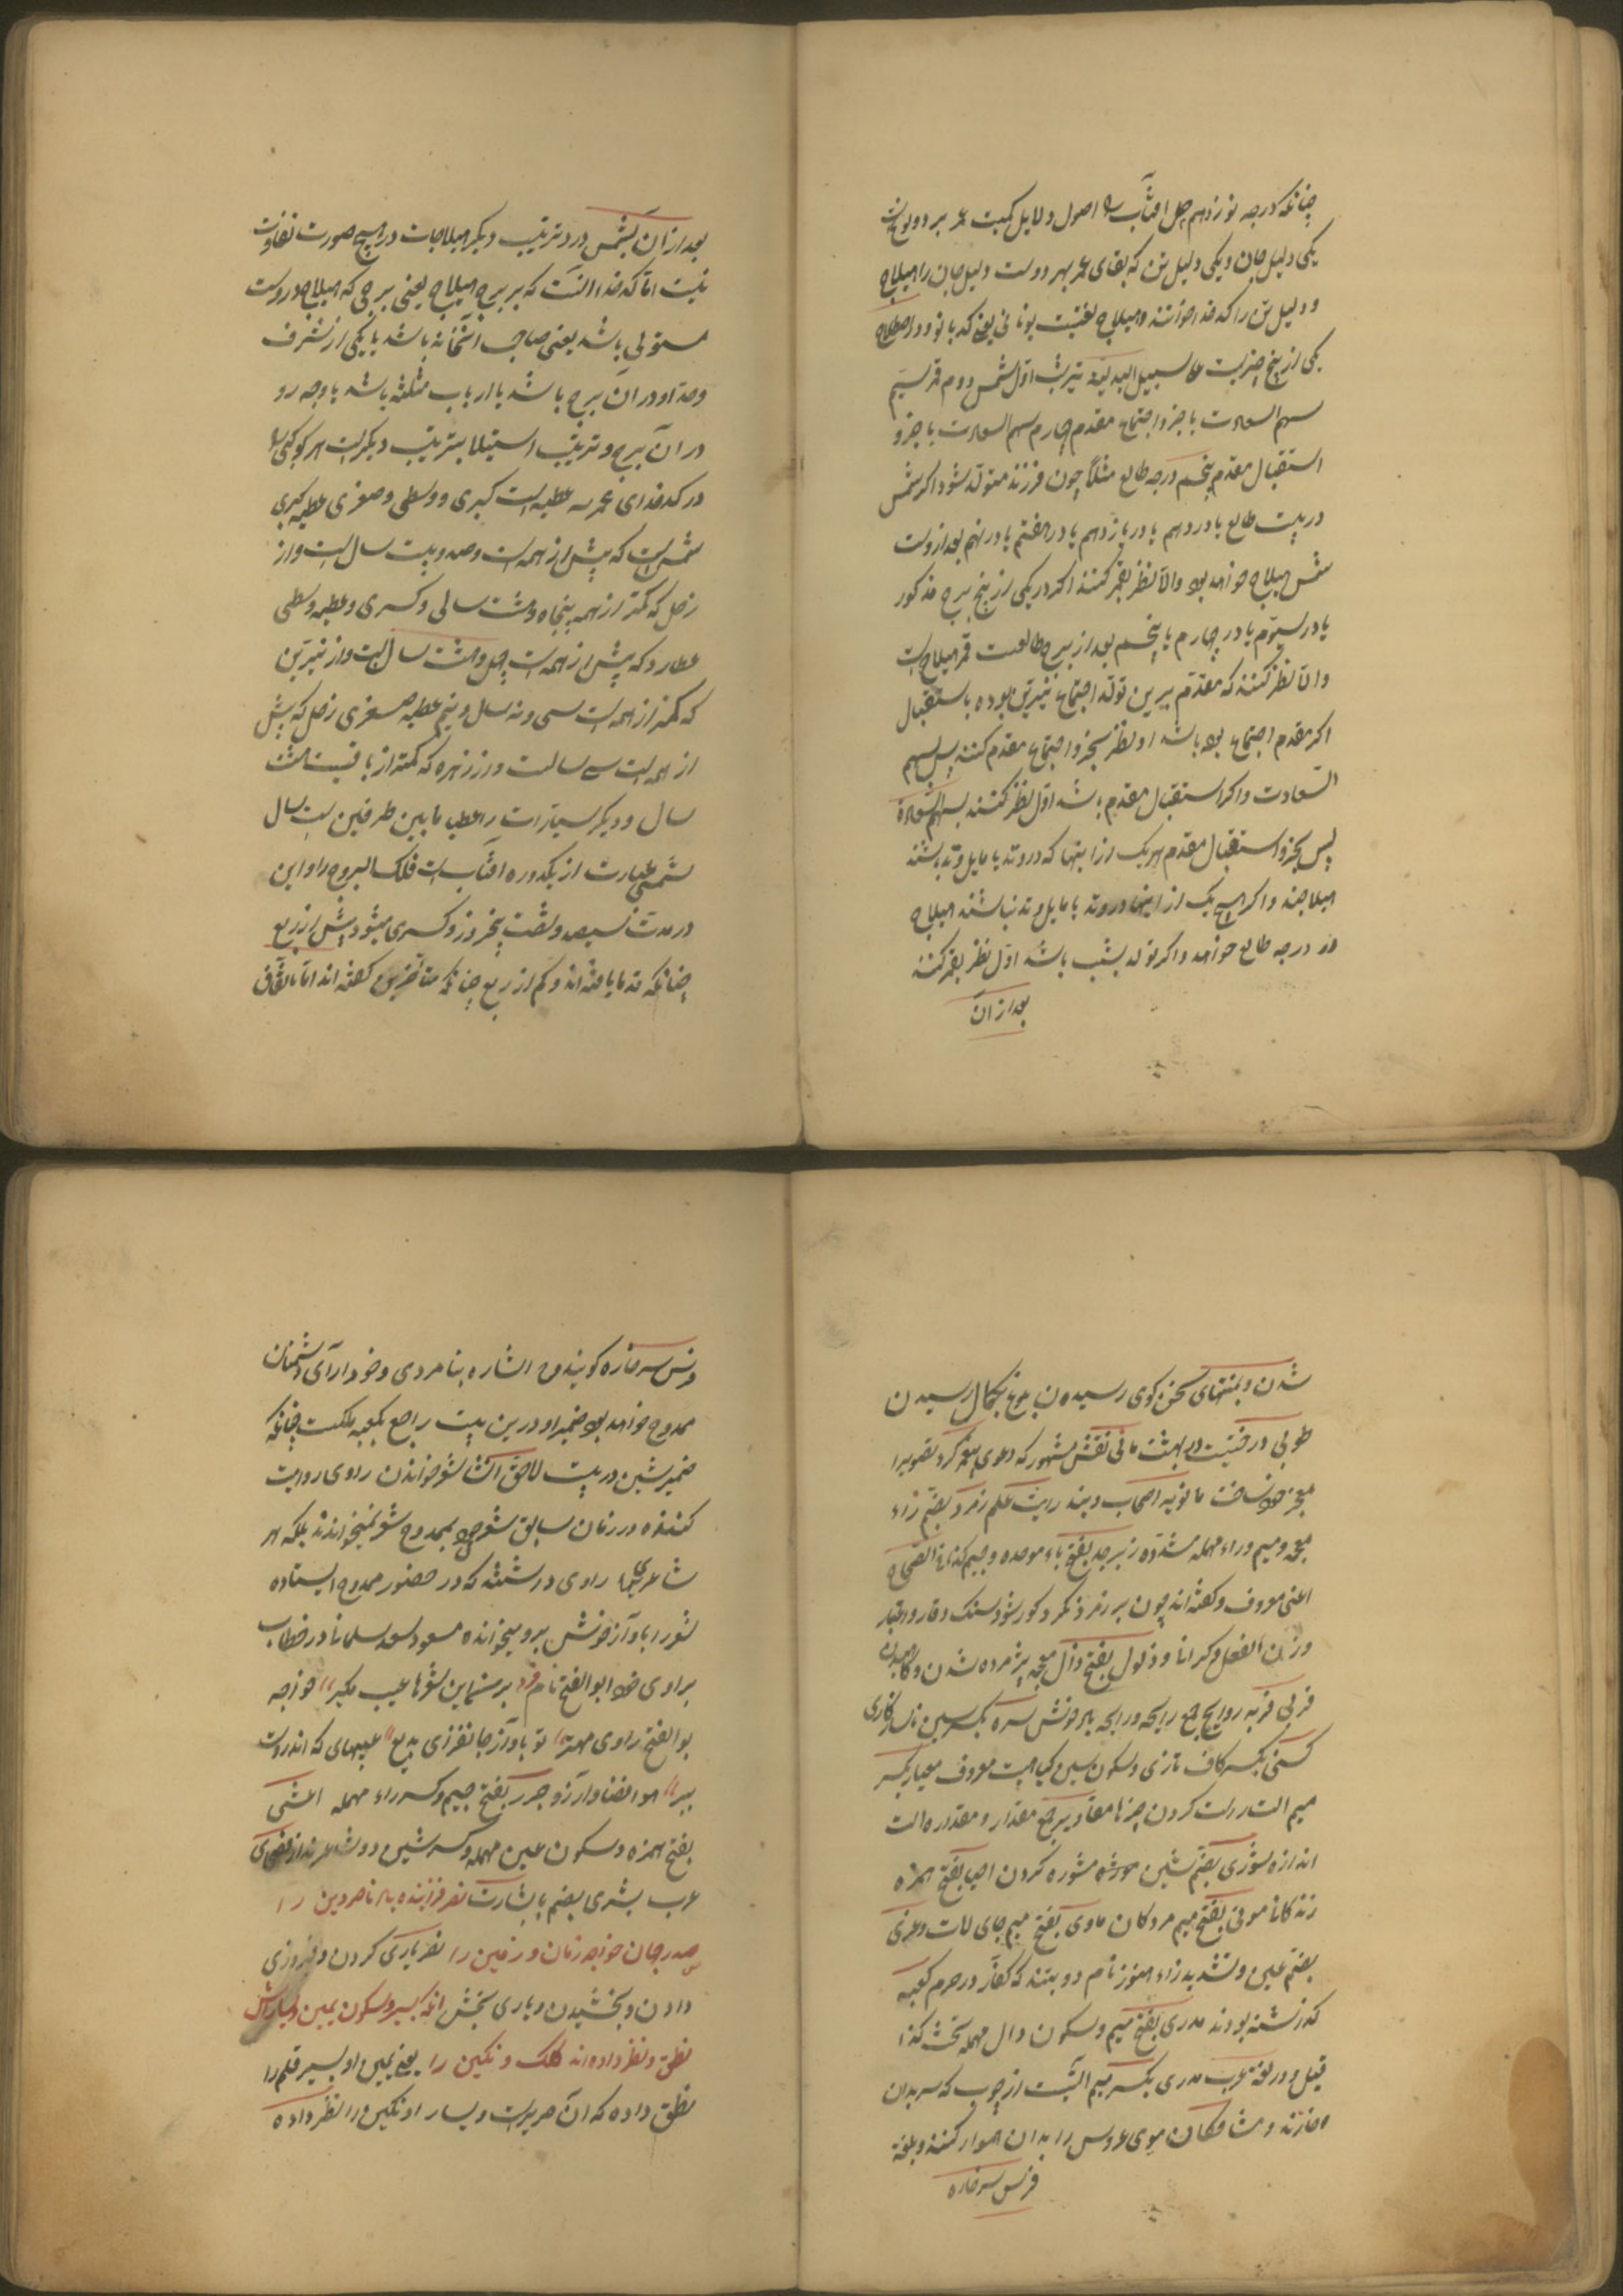 چنانکه درجه نوزدهم حمل افتاب را اصول و دلایل کمیت عمر بر دو نوع است
یکی دلیل جان و یکی دلیل تن که بقای عمر بهر دوست دلیل جان را هیلاج
و دلیل تن را کدخدا خوانند و هیلاج لغتیست یونانی یعنی کدبانو و در اصطلاح
یکی از پنج چیزست علی سبیل البدلیة بترتیب اول شمس دوم قمر سیم
سهم السعادت یا جزو اجتماع مقدم چهارم سهم السعادت یا جزو
استقبال مقدم پنجم درجه طالع مثلا چون فرزند متولد شود اگر شمس
در بیت طالع یا در دهم یا در یازدهم یا در هفتم یا در نهم بعد ازوست
شمس هیلاج خواهد بود والا نظر بقمر کنند اگر در یکی از پنج برج مذکور
یا در سیوم یا در چهارم یا پنجم بعد از برج طالعست قمر هیلاج است
والا نظر کنند که مقدم برین تولد اجتماع نیرین بوده یا استقبال
اگر مقدم اجتماع بوده باشد اول نظر بجزو اجتماع مقدم کنند پس بسهم
السعادت و اگر استقبال مقدم باشد اول نظر کنند بسهم السعادة
پس بجزو استقبال مقدم هر یک از اینها که در وتد یا مایل وتد باشند
هیلاجند و اگر هیچ یک از اینها در وتد یا مایل وتد نباشند هیلاج
درجه طالع خواهد و اگر تولد بشب باشد اول نظر بقمر کنند
بعد از آن
بعد از آن بشمس و در ترتیب دیگر هیلاجات در هیچ صورت تفاوت
نیست اما کدخدا آنست که بر برج هیلاج یعنی برجی که هیلاج دروست
مستولی باشد یعنی صاحب آنخانه باشد یا یکی از شرف
وحد او در آن برج باشد یا ارباب مثلثه باشد یا وجه رو
در آن برج و ترتیب استیلا بترتیب دیگرست هر کوکبی را
در کدخدای عمر سه عطیه است کبری و وسطی و صغری عطیه کبری
شمس است که بیش از همه است و صد و بیست سال است و از
زحل که کمتر از همه پنجاه و هشت سالی و کسری و عطیه وسطی
عطارد که بیش از همه است چهل و هشت سال است و از نیرین
که کمتر از همه است سی و نه سال و نیم عطیه صغری زحل که بیش
از همه است سی سالست و از زهره که کمتر از باقیست هشت
سال و دیگر سیارات را عطایا ما بین طرفین است سال
شمسی عبارت از یکدوره افتاب است فلک البروج را و این
در مدت سیصد و شصت پنج روز و کسری میشود بیش از ربع
چنانکه قدما یافته اند و کم از ربع چنانکه متاخرین گفته اند اما باتفاق
شدن و بمنتهای سخن کوی رسیدن بلوغ بکمال رسیدن
طوبی درختیست در بهشت مانی نقاش مشهور که دعوی پیغمبری کرد تصویر را
معجز خود ساخت مانویه اصحاب ویند رایت علم زمرد بضم زاء
معجمه و میم وراء مهمله مشدده زبرجد بفتح باء موحده و جیم کذا فی الصحاح
افعی معروف و گفته اند چون بر زمرد نگرد کور شود سنگ وقار و اعتبار
وزن الفعل و کرانی و ذبول بفتح ذال معجمه پژمرده شدن و کاهیدن
فربی فربه روایح جمع رایحه و رایحه بوی خوش سره بکسر سین ناسازکاری
کسنی بکسر کاف تازی و سکون سین کیاهیست معروف معیار بکسر
میم آلت راست کردن چیزها مقادیر جمع مقدار و مقدار آلت
اندازه شوری بضم شین مشوره کردن احیا بفتح همزه
زندکانی موتی بفتح میم مردکان ماوی بفتح میم جای لات و عزی
بضم عین و تشدید زاء هنوز نام دو بتند که کفار در حرم کعبه
کذاشته بودند مدری بفتح میم و سکون دال مهمله سخت کذا
قیل و در لغة عرب مدری بکسر میم آلتیست از چوب که سر بدان
خارند و مشاطکان موی عروس را بدان هموار کنند و بلغة
فرس سرخاره
فرس سرخاره کویند و اشاره بنامردی و خودآرای دشمنان
ممدوح خواهد بود ضمیر او درین بیت راجع بکعبه ملکست چنانکه
ضمیر شین در بیت لاحق انشا شعر خواندن راوی روایت
کننده در زمان سابق شعر خود بممدوح شعر نمیخواندند بلکه هر
شاعری را راوی داشته که در حضور ممدوح ایستاده
شعر را باواز خوش برو میخوانده مسعود سعد سلمان در خطاب
براوی خود ابو الفتح نام فرد بر من این شعرها عیب مکیر خواجه
بوالفتح راوی مهتر تو باواز جانفزای بدیع عیبهای که اندروست
ببر هوا فضا و آرزو جریر بفتح جیم و کسر راء مهمله اعشی
بفتح همزه و سکون عین مهمله و کسر شین دو شاعرند از فصحای
عرب بشری بضم با بشارت نصر فزاینده ناصر دین را
صدر جهان خواجه زمان و زمین را نصر یاری کردن و فیروزی
دادن و بخشیدن و یاری بخش آنکه بیسیر و سکون یمین و یسارش
نطق و نظر داده اند کلک و نکین را یعنی یمین او بسیر قلم را
نطق داده که آن صریرست و یسار او نکین را نظر داده